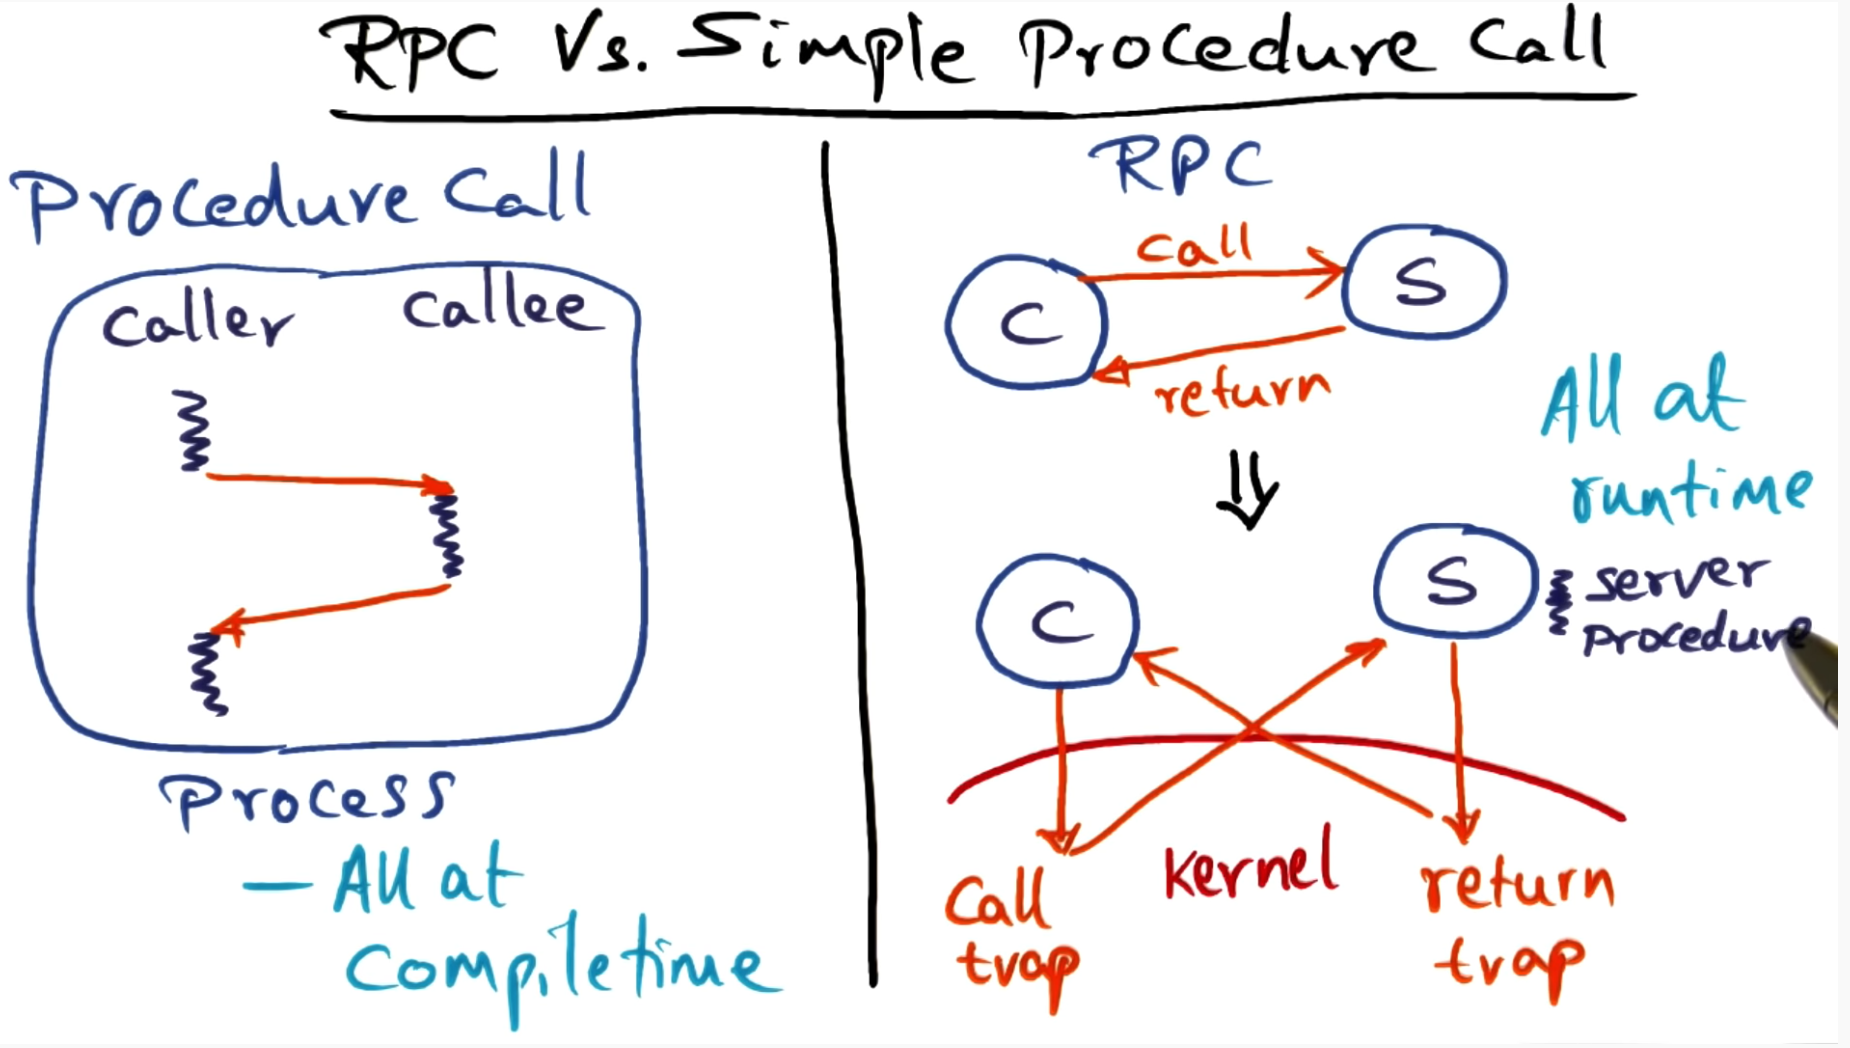 RPC Vs. Simple Procedure Call
Procedure Call
Caller
Callee
Process
— All at
Compiletime
RPC
Call
C
S
return
All at
runtime
C
S
server
procedure
Call
trap
Kernel
return
trap